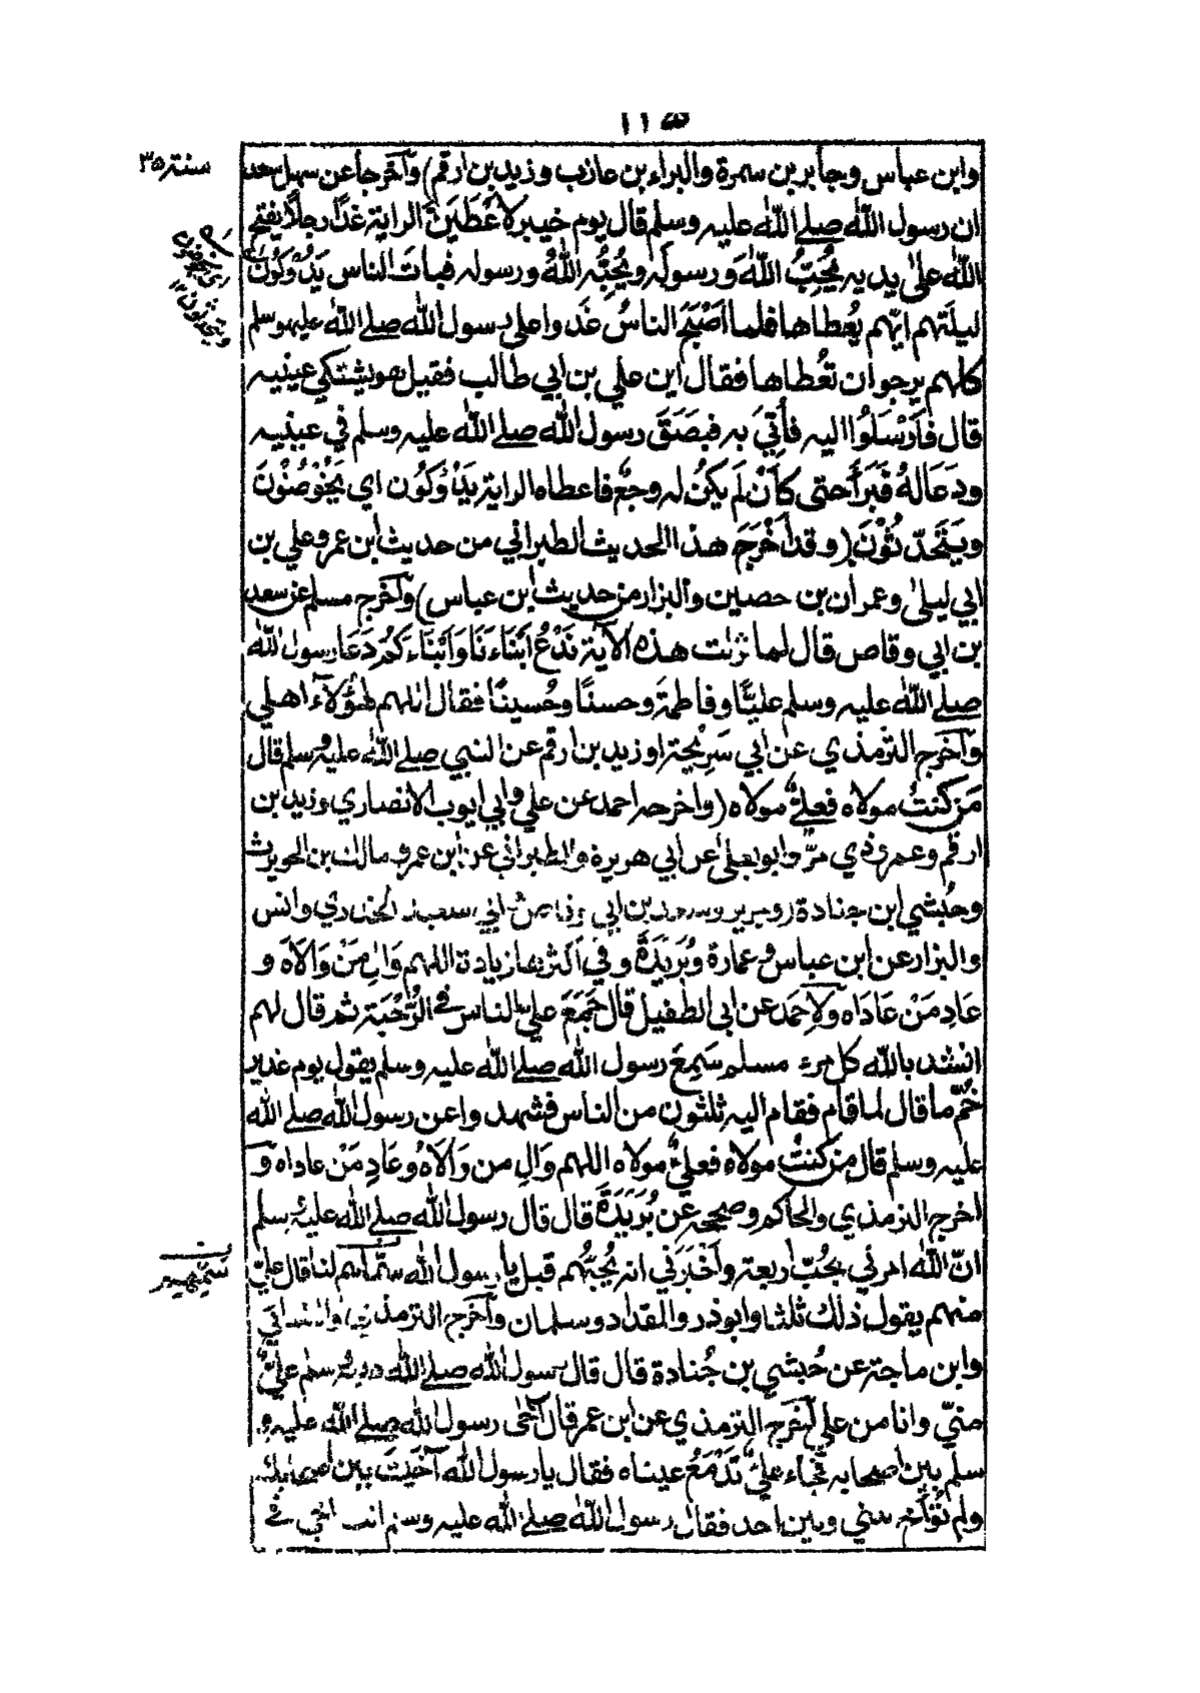 ١١٥
سنة ٣٥
وابن عباس وجابر بن سمرة والبراء بن عازب وزيد بن ارقم) وآخرجا عن سهل سعد
ان رسول الله صلے الله عليه وسلم قال يوم خيبر لأعْطَيَنَّ الراية غدًا رجلًا يفتح
الله علىٰ يديه يُحِبُّ اللهَ ورسولَه ويُحِبُّه اللهُ ورسوله فبات الناس يَدُوْكُوْنَ
ليلتهم ايّهم يُعطاها فلما اَصْبَحَ الناسُ غَدَوا على رسول الله صلے الله عليه وسلم
كلهم يرجوان تُعْطاها فقال اين علي بن ابي طالب فقيل هو يشتكي عينيه
قال فاَرْسَلُوْا اليه فأُتِيَ به فبَصَقَ رسول الله صلے الله عليه وسلم في عينيه
ودَعَا لهُ فَبَرَأَ حتى كأَنْ لَم يكنْ له وجعٌ فاعطاه الراية يَدُوْكُوْن اي يَخُوْضُوْنَ
ويَتَحَدَّثُوْنَ (وقد اَخْرَجَ هذا الحديث الطبراني من حديث ابن عمرو علي بن
ابي ليلىٰ وعمران بن حصين والبزار من حديث ابن عباس) وآخرج مسلم عن سعد
بن ابي وقاص قال لما نزلت هذه الآية نَدْعُ اَبْنَاءَنَا وَاَبْنَاءَكُمْ دَعَا رسول الله
صلے الله عليه وسلم عليًّا وفاطمة وحسنًا وحُسينًا فقال اللهم هٰؤلاء اهلي
وآخرج الترمذي عن ابي سَرِيْحة او زيد بن ارقم عن النبي صلے الله عليه وسلم قال
مَن كنتُ مولاه فعليٌّ مولاه (واخرجه احمد عن علي وابي ايوب الانصاري وزيد بن
ارقم وعمرو ذي مرّ وابو يعلىٰ عن ابي هريرة والطبراني عن ابن عمر ومالك بن الحويرث
وحُبْشي ابن جنادة وجرير وسعد بن ابي وقاص وابي سعيد الخدري وانس
والبزار عن ابن عباس وعمارة وبُرَيْدَةَ وفي اكثرها زيادة اللهم وَالِ مَنْ وَالَاه و
عادِ مَنْ عَادَاه ولاحمد عن ابى الطفيل قال جَمَعَ عليٌّ الناس فے الرُّحْبَة ثم قال لهم
انشد بالله كل مرء مسلم سَمِعَ رسول الله صلے الله عليه وسلم يقول يوم غدير
خُمٍّ ما قال لما قام فقام اليه ثلثون من الناس فشهدوا عن رسول الله صلے الله
عليه وسلم قال من كنتُ مولاه فعليٌّ مولاه اللهم وَالِ من وَالَاهُ وعَادِ مَنْ عاداه وَ
اخرج الترمذي والحاكم وصححه عن بُرَيْدَةَ قال قال رسول الله صلے الله عليه وسلم
انّ الله امرني بحُبّ اربعة واَخْبَرَني انه يُحِبُّهم قيل يا رسول الله سَمِّهم لنا قال عليٌّ
منهم يقول ذلك ثلثا وابوذر والمقداد وسلمان وآخرج الترمذي والنسائي
وابن ماجة عن حُبشي بن جُنادة قال قال رسول الله صلے الله عليه وسلم عليٌّ
منّي وانا من علي آخرج الترمذي عن ابن عمر قال آخىٰ رسول الله صلے الله عليه و
سلم بين اصحابه فجاء عليٌّ تَدْمَعُ عيناه فقال يا رسول الله آخَيْتَ بين اصحابك
ولم تُؤَاخِ بيني وبين احد فقال رسول الله صلے الله عليه وسلم انت اخي فے
سَمِّهم